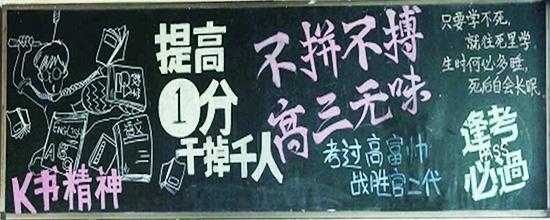 K书精神
ENGLISH
提高
1分
干掉千人
不拼不搏
高三无味
考过高富帅
战胜官二代
只要学不死，
就往死里学，
生时何必多睡，
死后自会长眠。
逢考
PASS
必過